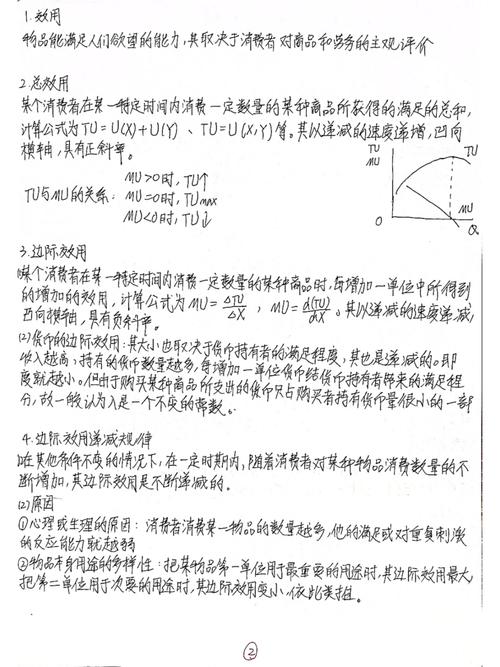 1.效用
物品能满足人们欲望的能力,其取决于消费者对商品和劳务的主观评价
2.总效用
某个消费者在某一特定时间内消费一定数量的某种商品所获得的满足的总和,
计算公式为TU=U(X)+U(Y)、TU=U(X,Y)等。其以递减的速度递增,凹向
横轴,具有正斜率。
TU
MU
TU
MU>0时,TU↑
TU与MU的关系:MU=0时,TUmax
MU<0时,TU↓
MU
O
Q
3.边际效用
(1)某个消费者在某一特定时间内消费一定数量的某种商品时,每增加一单位中所得到
的增加的效用,计算公式为MU=ΔTU/ΔX,MU=d(TU)/dX。其以递减的速度递减,
凹向横轴,具有负斜率。
(2)货币的边际效用:其大小也取决于货币持有者的满足程度,其也是递减的。即
收入越高,持有的货币数量越多,每增加一单位货币给货币持有者带来的满足程
度就越小。但由于购买某种商品所支出的货币只占购买者持有货币量很小的一部
分,故一般认为λ是一个不变的常数。
4.边际效用递减规律
(1)在其他条件不变的情况下,在一定时期内,随着消费者对某种物品消费数量的不
断增加,其边际效用是不断递减的。
(2)原因
①心理或生理的原因:消费者消费某一物品的数量越多,他的满足或对重复刺激
的反应能力就越弱
②物品本身用途的多样性:把某物品第一单位用于最重要的用途时,其边际效用最大,
把第二单位用于次要的用途时,其边际效用变小,依此类推。
②